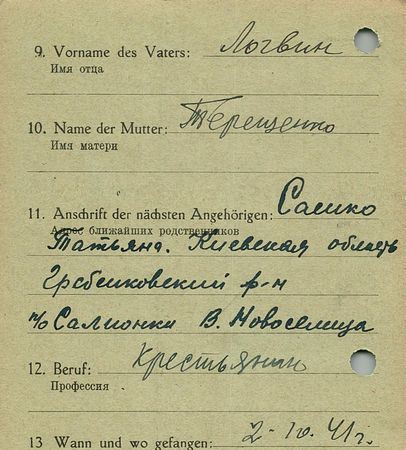 9. Vorname des Vaters: Логвин
Имя отца
10. Name der Mutter: Терещенко
Имя матери
11. Anschrift der nächsten Angehörigen: Сашко
Адрес ближайших родственников
Татьяна. Киевская область
Гребенковский р-н
п/о Салионки В. Новоселица
12. Beruf: Крестьянин
Профессия
13 Wann und wo gefangen: 2-10. 41 г.